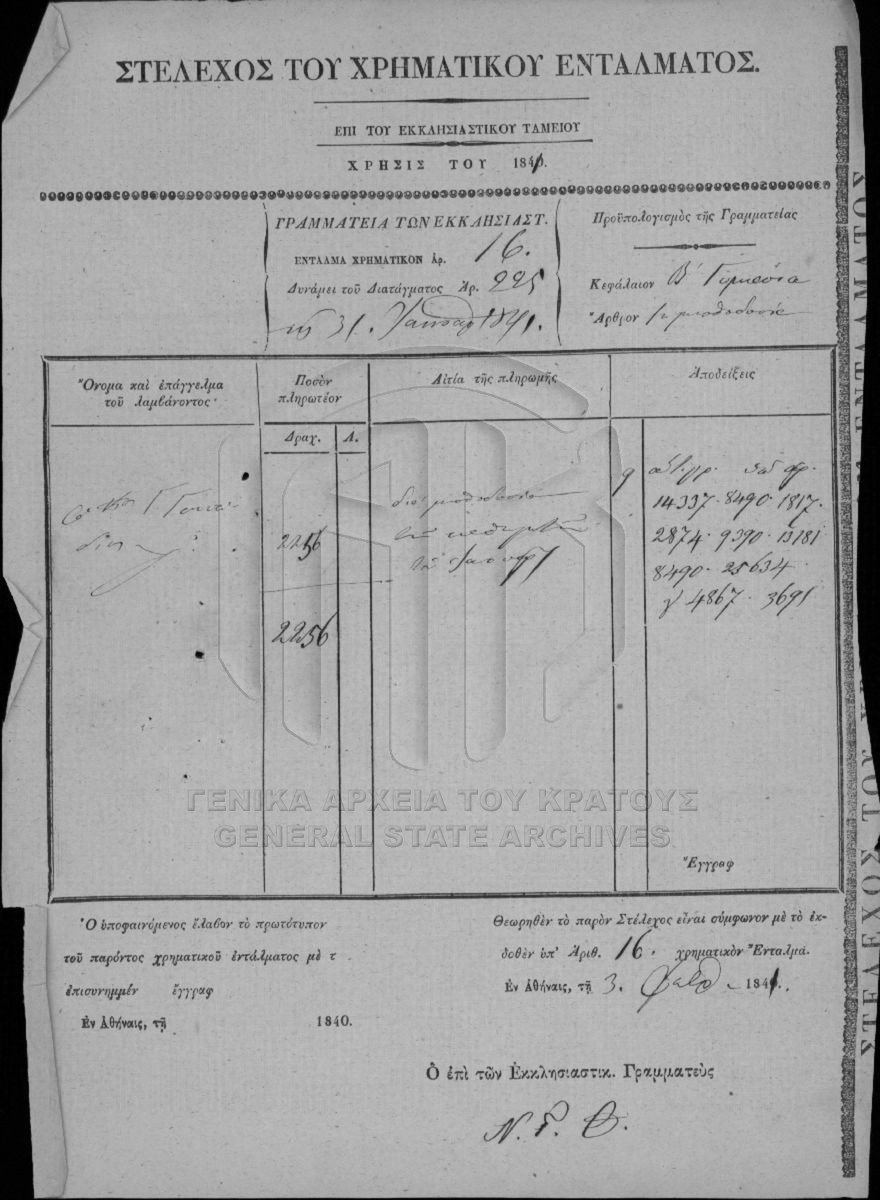 ΣΤΕΛΕΧΟΣ ΤΟΥ ΧΡΗΜΑΤΙΚΟΥ ΕΝΤΑΛΜΑΤΟΣ.
ΕΠΙ ΤΟΥ ΕΚΚΛΗΣΙΑΣΤΙΚΟΥ ΤΑΜΕΙΟΥ
ΧΡΗΣΙΣ ΤΟΥ 1841.
ΓΡΑΜΜΑΤΕΙΑ ΤΩΝ ΕΚΚΛΗΣΙΑΣΤ.
ΕΝΤΑΛΜΑ ΧΡΗΜΑΤΙΚΟΝ Ἀρ. 16.
Δυνάμει τοῦ Διατάγματος Ἀρ. 225
31. 1841.
Προϋπολογισμὸς τῆς Γραμματείας
Κεφάλαιον Β' Γυμνάσια
Ἄρθρον μισθοδοσία
Ὄνομα καὶ ἐπάγγελμα τοῦ λαμβάνοντος
Ποσὸν πληρωτέον
Αἰτία τῆς πληρωμῆς
Ἀποδείξεις
Δραχ. Λ.
2256
διὰ μισθοδοσίαν
2256
9
14337 · 8490 · 1817 ·
2874 · 9390 · 13181
8490 · 25634 ·
4867 · 3691
Ἔγγραφ
ΓΕΝΙΚΑ ΑΡΧΕΙΑ ΤΟΥ ΚΡΑΤΟΥΣ
GENERAL STATE ARCHIVES
Ὁ ὑποφαινόμενος ἔλαβον τὸ πρωτότυπον
τοῦ παρόντος χρηματικοῦ ἐντάλματος μὲ τ
ἐπισυνημμέν ἔγγραφ
Ἐν Ἀθήναις, τῇ 1840.
Θεωρηθὲν τὸ παρὸν Στέλεχος εἶναι σύμφωνον μὲ τὸ ἐκ-
δοθὲν ὑπ' Ἀριθ. 16. χρηματικὸν Ἔνταλμα.
Ἐν Ἀθήναις, τῇ 3. 1841.
Ὁ ἐπὶ τῶν Ἐκκλησιαστικ. Γραμματεὺς